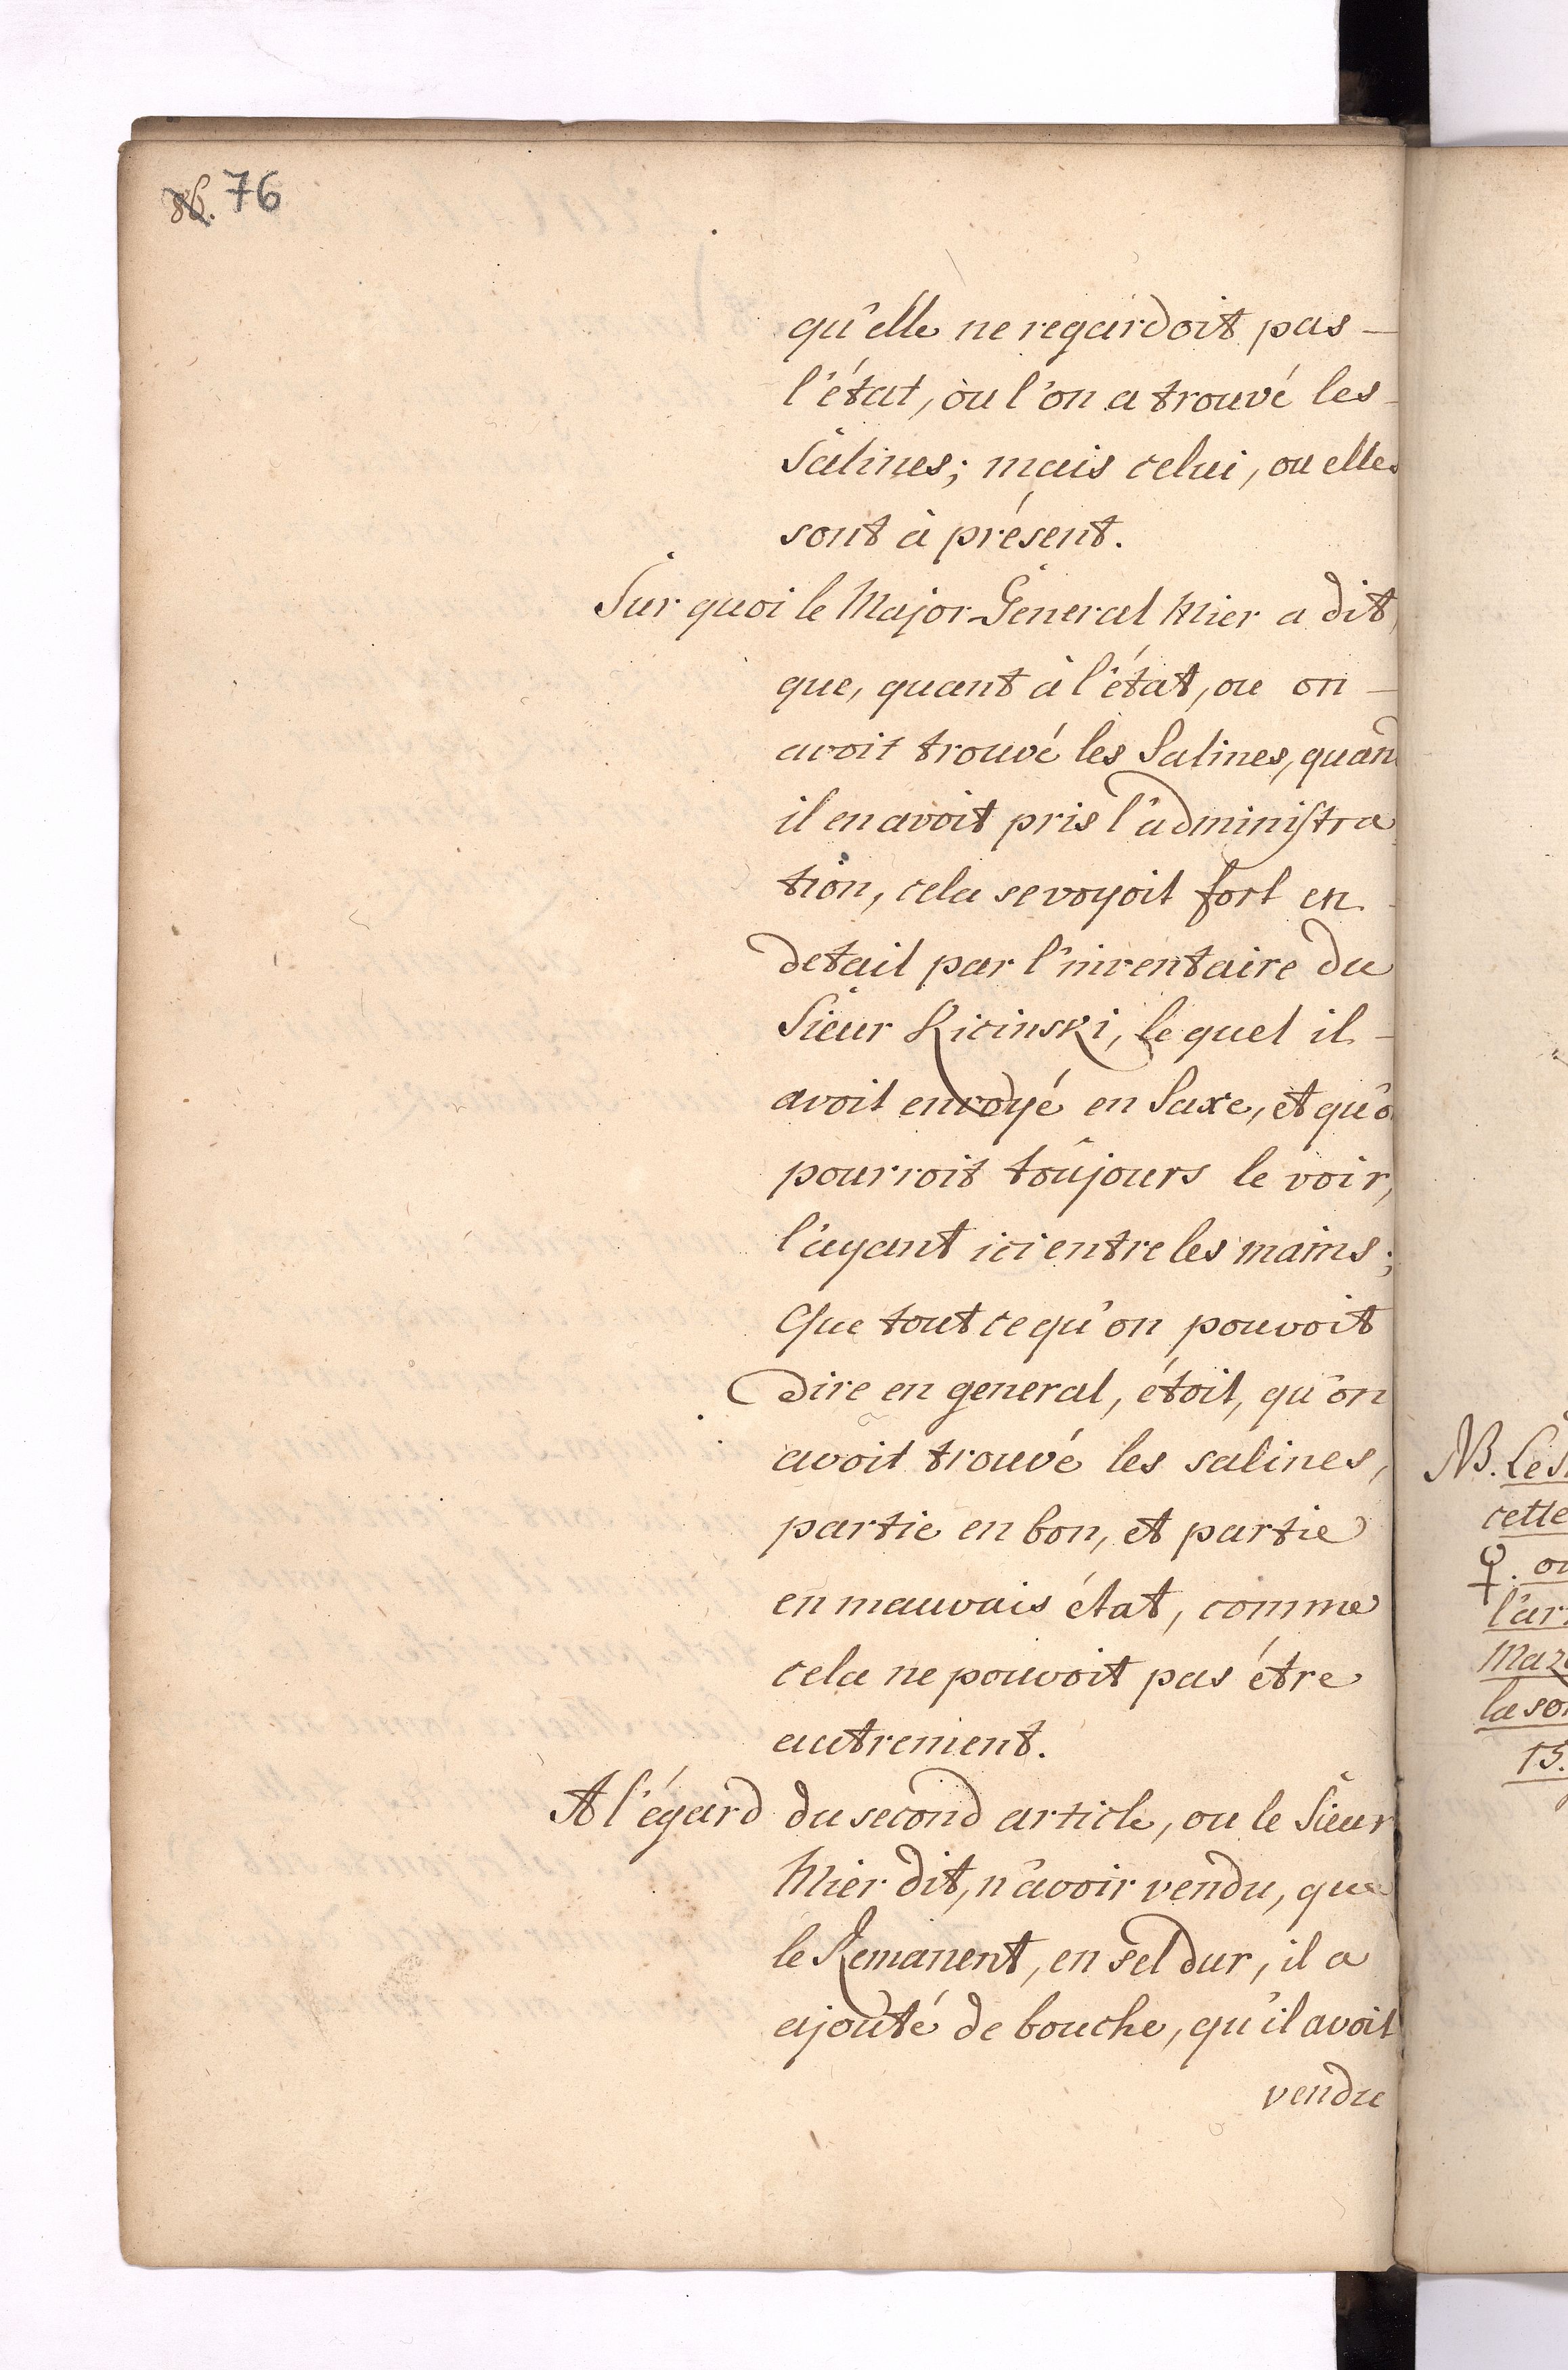 86. 76
qu'elle ne regardoit pas –
l'état, où l'on a trouvé les –
Salines; mais celui, ou elles
sont à présent.
Sur quoi le Major-General Mier a dit,
que, quant à l'état, ou on –
avoit trouvé les Salines, quand
il en avoit pris l'administra
tion, cela se voyoit fort en –
detail par l'inventaire du
Sieur Kicinski, le quel il –
avoit envoyé en Saxe, et qu'o
pourroit toûjours le voir,
l'ayant ici entre les mains;
Que tout ce qu'on pouvoit
dire en general, étoit, qu'on
avoit trouvé les salines,
partie en bon, et partie
en mauvais état, comme
cela ne pouvoit pas être
autrement.
A l'égard du second article, ou le Sieur
Mier dit, n'avoir vendu, que
le Remanent, en sel dur, il a
ajouté de bouche, qu'il avoit
vendu
NB. Le
cette
♀. ou
l'ar
Maz
la so
13.